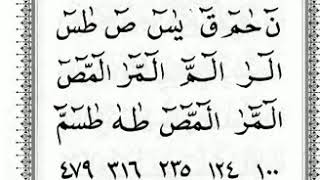 نٓ حٰمٓ قٓ يٰسٓ صٓ طٰسٓ
الٓرٰ الٓمّٓ الٓمّٓرٰ الٓمّٓصٓ
الٓمّٓرٰ الٓمّٓصٓ طٰهٰ طٰسٓمّٓ
١٠٠ ١٢٤ ٢٣٥ ٣١٦ ٤٧٩